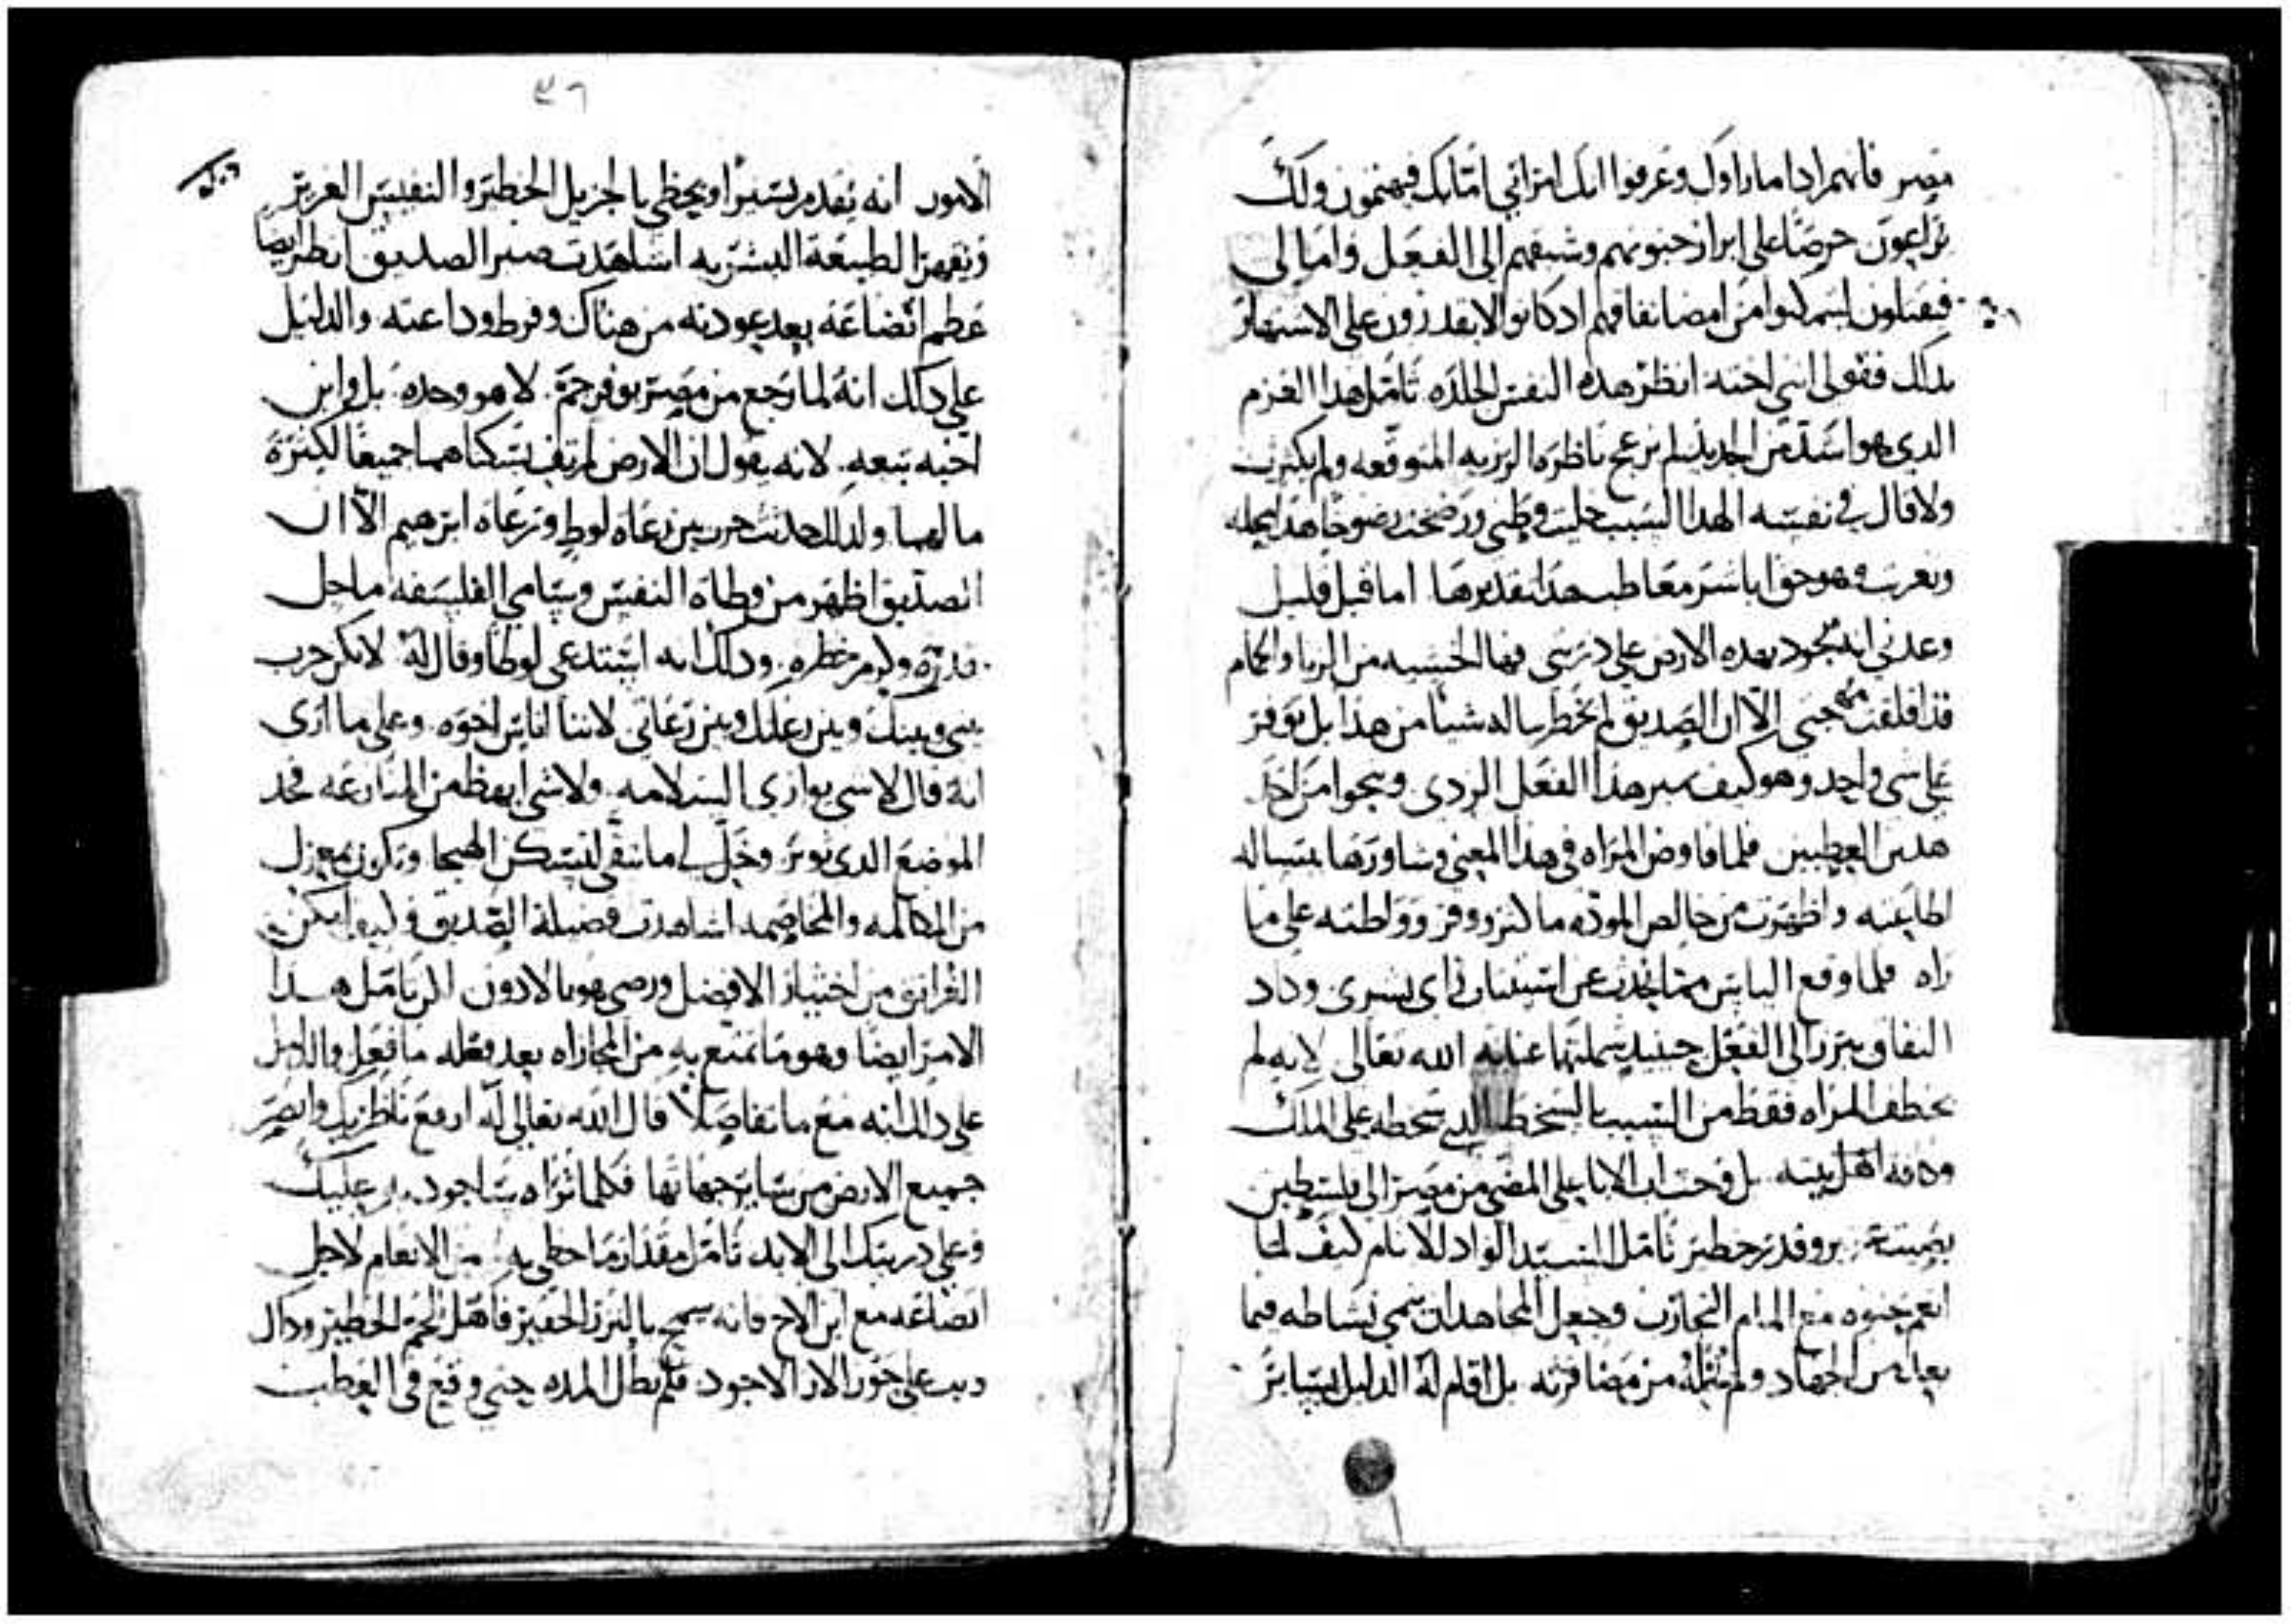 مصر فانهم ادا ما راوك وعرفوا انك امراتي امّا انك فيهتمون ولك
يراعون حرصًا على ابراز جنونهم وشبقهم الى الفعل واما لي
فيقتلون ليتمكنوا من امضا نفاقهم اد كانوا لا يقدرون على الاستهار
بدلك فقولي انني اخته انظر هده النفس الجلده تامل هدا العزم
الدي هو اشد من الحديد لم يزعج ناظره الرزيه المتوقعه ولم يكترث
ولا قال في نفسه الهدا السبب خليت وطني
وهو حق اياسر معاطب هدا تقديرها اما قبل قليل
وعدني انه يجود بهده الارض على دريتي فها الخشيه من الزنا والحمام
قد اقلقت مهجتي الا ان الصديق لم يخطر بباله شيا من هدا بل توفر
على شي واحد وهو كيف هدا الفعل الردي وينجوا من احد
هدين العطبين فلما فاوض المراه في هدا المعنى وشاورها بمساله
اطاعته واظهرت من خالص الموده ما كثر ووفر وواطته على ما
راه فلما وقع الياس اي بشري وكاد
النفاق يبرز الى الفعل حينيد شملتها عنايه الله تعالى لانه لم
يخطف المراه فقط من السبب بالسخط الدي سخطه على الملك
وكافه اهل بيته بل وحث اب الابا على المضي من مصر الى فلسطين
وقدر خطير تامل السيد الواد للانام كيف لما
انعم جنوه مع المام التجارب وجعل المجاهد ان ينمي نشاطه فيما
من الجهاد ولم يخله من مضافرته بل اقام له الدليل بساير
٣٦
الامور انه يقدم يسيرًا ويحظي بالجزيل الخطير والنفيس العزيز
ويقهر الطبيعة البشريه اشاهدت صبر الصديق انظر ايضا
عظم اتضاعه بعد عودته من هناك وفرط وداعته والدليل
على دلك انه لما رجع من مصر بوفر جمّ لا هو وحده بل وابن
اخيه تبعه لانه يقول ان الارض لم تف بسكناهما جميعًا لكثرة
مالهما ولدلك حدثت حرب بين رعاه لوط ورعاه ابرهيم الا ان
الصديق اظهر من وطاة النفس وسامي الفلسفه ما جل
قدره وكرم خطره ودلك انه استدعى لوطًا وقال له لا يكن حرب
بيني وبينك وبين رعاتك وبين رعاتي لاننا اناس اخوه وعلى ما ارى
انه قال لا شي يوازي السلامه ولا شي ابهظ من المنازعه فخد
الموضع الدي توثر وخلّ لي ما تبقى لتسكن الهيجا ونكون بمعزل
من المكالمه والمخاصمه اشاهدت فضيلة الصديق وكيف امكن
القرانق من اختيار الافضل ورضي هو بالادون الم تامل هدا
الامر ايضًا وهو ما تمتع به من المجازاه بعد فعله ما فعل والدليل
على دلك انه مع ما تفاصلا قال الله تعالى له ارفع ناظريك وابصر
جميع الارض من ساير جهاتها فكلما تراه ساجود به عليك
وعلى دريتك الى الابد تامل مقدار ما حظي به من الانعام لاجل
اتضاعه مع ابن الاخ فانه سمح بالنزر الحقير فاهل للجم الخطير وداك
على حوز الاجود فلم تطل المده حتى وقع في العطب